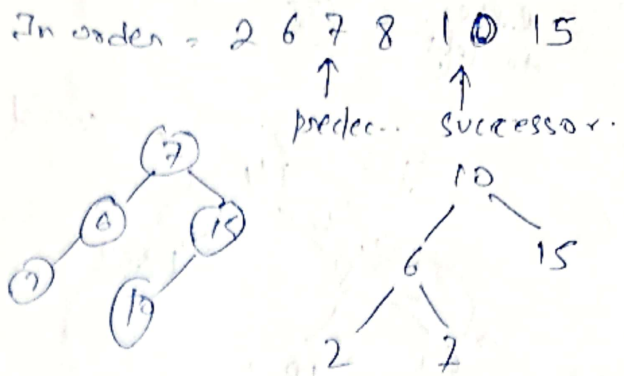 In order = 2 6 7 8 10 15
predec.. successor.
7
6
15
2
10
10
6
15
2 7